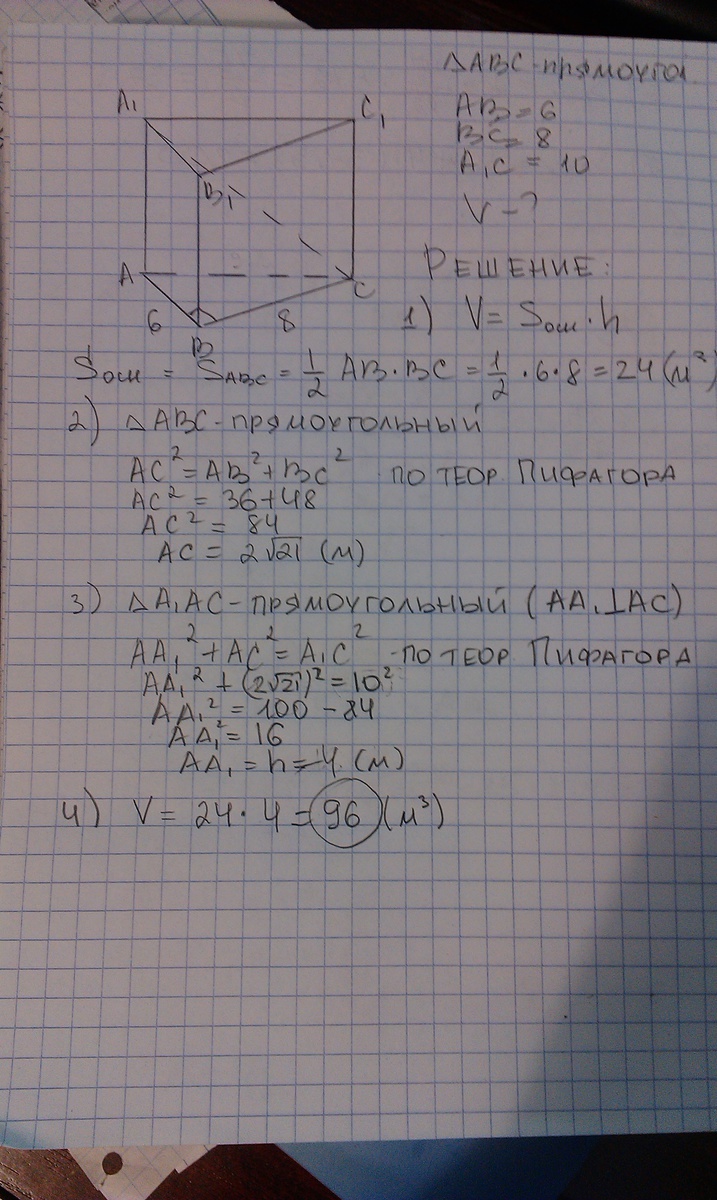 ΔABC-прямоугол
AB = 6
BC = 8
A₁C = 10
V - ?
A₁
C₁
B₁
A
C
B
6
8
РЕШЕНИЕ:
1) V = Sосн · h
Sосн = SABC = 1/2 AB · BC = 1/2 · 6 · 8 = 24 (м²)
2) ΔABC-ПРЯМОУГОЛЬНЫЙ
AC² = AB² + BC² ПО ТЕОР ПИФАГОРА
AC² = 36+48
AC² = 84
AC = 2√21 (м)
3) ΔA₁AC-ПРЯМОУГОЛЬНЫЙ (AA₁⊥AC)
AA₁² + AC² = A₁C² - ПО ТЕОР ПИФАГОРА
AA₁² + (2√21)² = 10²
AA₁² = 100 - 84
AA₁² = 16
AA₁ = h = 4 (м)
4) V = 24 · 4 = 96 (м³)